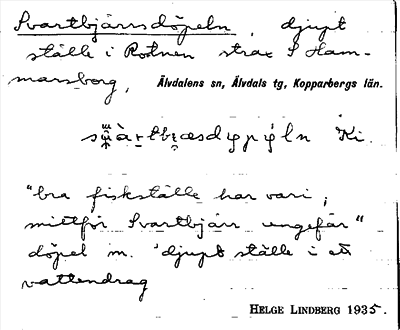 Svartbjärrsdöpeln, djupt
ställe i Rotnen strax S Ham-
marsborg, Älvdalens sn, Älvdals tg, Kopparbergs län.
Ki.
"bra fiskställe har vari,
mittför Svartbjärr ungefär"
döpel m. 'djupt ställe i ett
vattendrag
HELGE LINDBERG 1935.